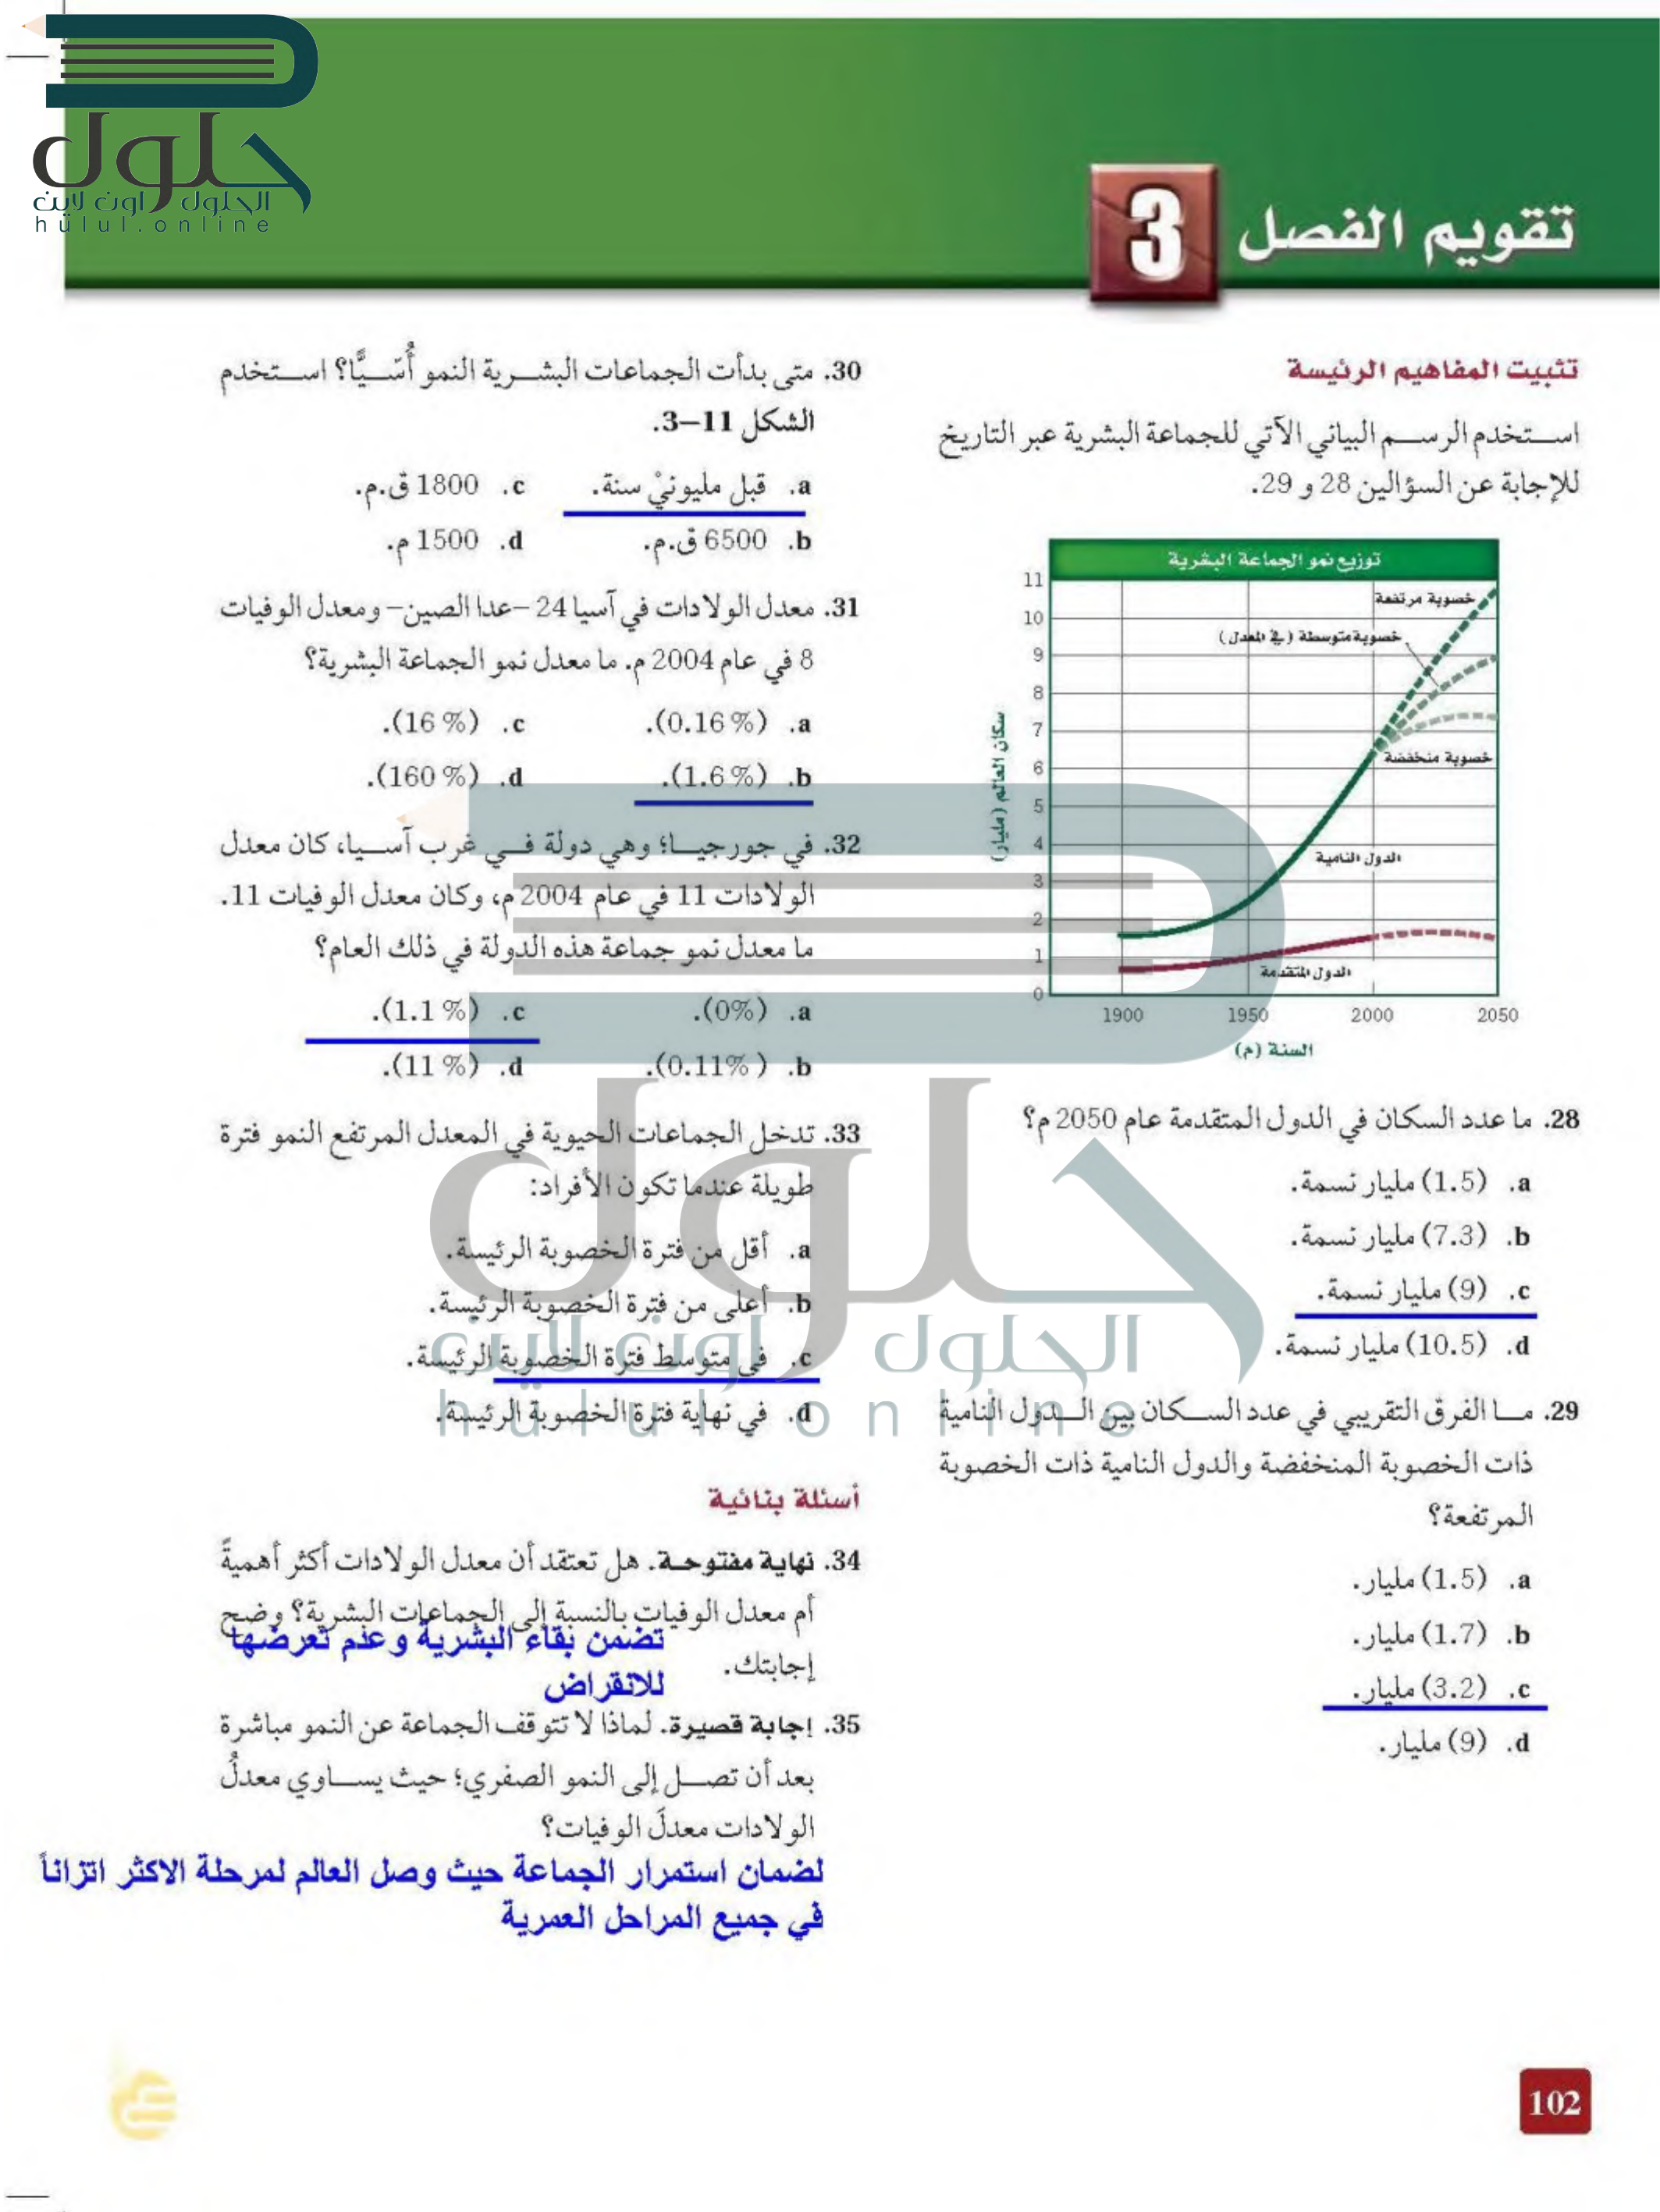 حلول
الحلول اون لاين
hulul.online
تقويم الفصل 3
تثبيت المفاهيم الرئيسة
استخدم الرسم البياني الآتي للجماعة البشرية عبر التاريخ
للإجابة عن السؤالين 28 و 29.
توزيع نمو الجماعة البشرية
خصوبة مرتفعة
خصوبة متوسطة (في المعدل)
خصوبة منخفضة
الدول النامية
الدول المتقدمة
سكان العالم (مليار)
11
10
9
8
7
6
5
4
3
2
1
0
1900 1950 2000 2050
السنة (م)
28. ما عدد السكان في الدول المتقدمة عام 2050 م؟
a. (1.5) مليار نسمة.
b. (7.3) مليار نسمة.
c. (9) مليار نسمة.
d. (10.5) مليار نسمة.
29. ما الفرق التقريبي في عدد السكان بين الدول النامية
ذات الخصوبة المنخفضة والدول النامية ذات الخصوبة
المرتفعة؟
a. (1.5) مليار.
b. (1.7) مليار.
c. (3.2) مليار.
d. (9) مليار.
30. متى بدأت الجماعات البشرية النمو أُسّيًّا؟ استخدم
الشكل 11–3.
a. قبل مليونيْ سنة. c. 1800 ق.م.
b. 6500 ق.م. d. 1500 م.
31. معدل الولادات في آسيا 24 –عدا الصين– ومعدل الوفيات
8 في عام 2004 م. ما معدل نمو الجماعة البشرية؟
a. (0.16 %). c. (16 %).
b. (1.6 %). d. (160 %).
32. في جورجيا؛ وهي دولة في غرب آسيا، كان معدل
الولادات 11 في عام 2004 م، وكان معدل الوفيات 11.
ما معدل نمو جماعة هذه الدولة في ذلك العام؟
a. (0%). c. (1.1 %).
b. (0.11% ). d. (11 %).
33. تدخل الجماعات الحيوية في المعدل المرتفع النمو فترة
طويلة عندما تكون الأفراد:
a. أقل من فترة الخصوبة الرئيسة.
b. أعلى من فترة الخصوبة الرئيسة.
c. في متوسط فترة الخصوبة الرئيسة.
d. في نهاية فترة الخصوبة الرئيسة.
أسئلة بنائية
34. نهاية مفتوحة. هل تعتقد أن معدل الولادات أكثر أهميةً
أم معدل الوفيات بالنسبة إلى الجماعات البشرية؟ وضح
إجابتك.
تضمن بقاء البشرية وعدم تعرضها
للانقراض
35. إجابة قصيرة. لماذا لا تتوقف الجماعة عن النمو مباشرة
بعد أن تصل إلى النمو الصفري؛ حيث يساوي معدلُ
الولادات معدلَ الوفيات؟
لضمان استمرار الجماعة حيث وصل العالم لمرحلة الاكثر اتزاناً
في جميع المراحل العمرية
حلول
الحلول اون لاين
hulul online
102